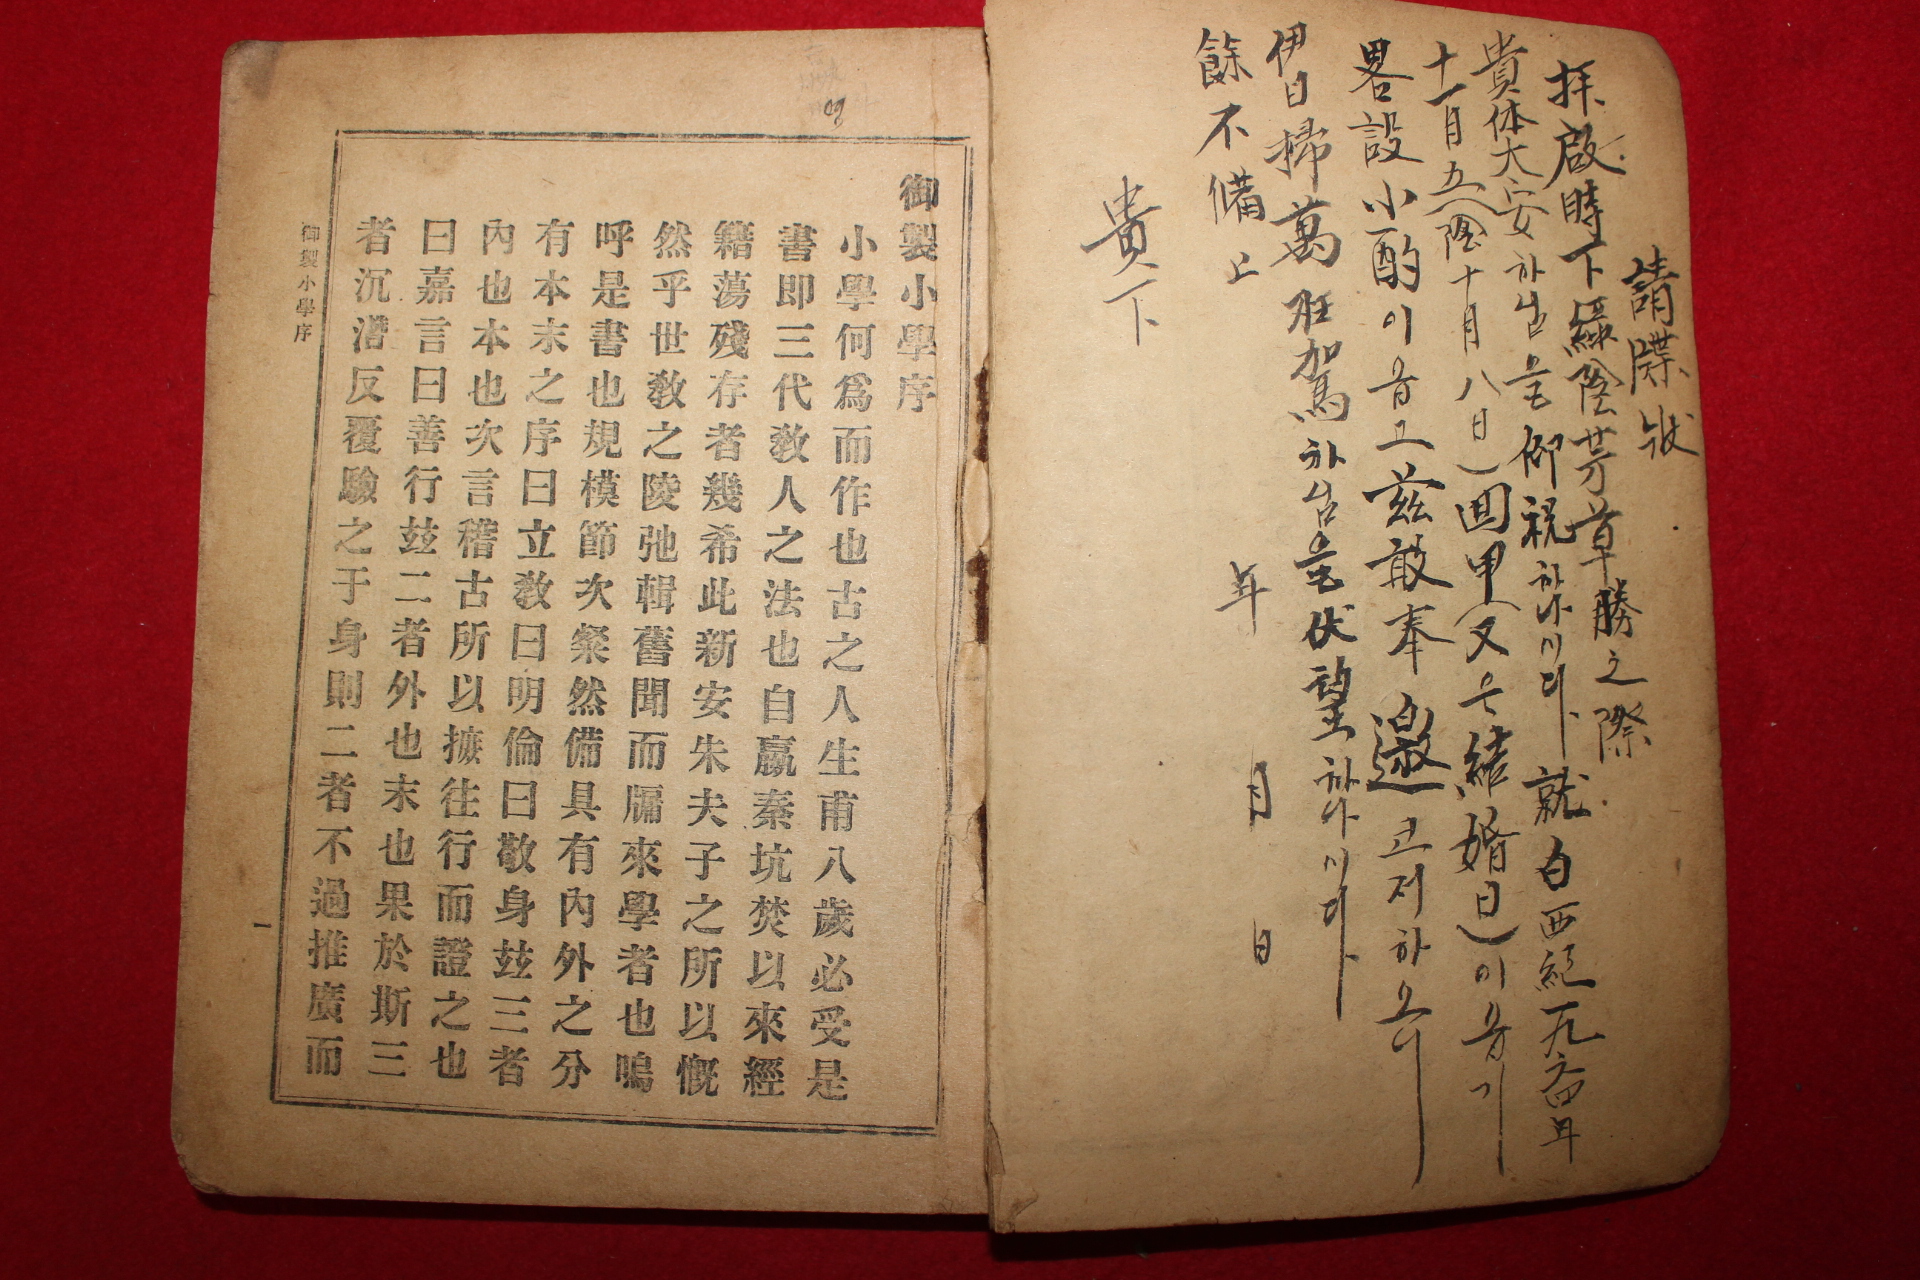 請牒狀
拜啟時下綠陰芳草勝之際
貴体大安하심을仰祝하나이다就白西紀一九六四年
十一月五(陰十月八日)回甲(又은結婚日)이옵기
畧設小酌이옵고玆敢奉邀코저하오니
伊日掃萬枉駕하심을伏望하나이다
餘不備上
年 月 日
貴下
御製小學序
小學何爲而作也古之人生甫八歲必受是
書即三代敎人之法也自嬴秦坑焚以來經
籍蕩殘存者幾希此新安朱夫子之所以慨
然乎世敎之陵弛輯舊聞而牖來學者也嗚
呼是書也規模節次粲然備具有內外之分
有本末之序曰立敎曰明倫曰敬身玆三者
內也本也次言稽古所以摭往行而證之也
曰嘉言曰善行玆二者外也末也果於斯三
者沉潛反覆驗之于身則二者不過推廣而
御製小學序
一